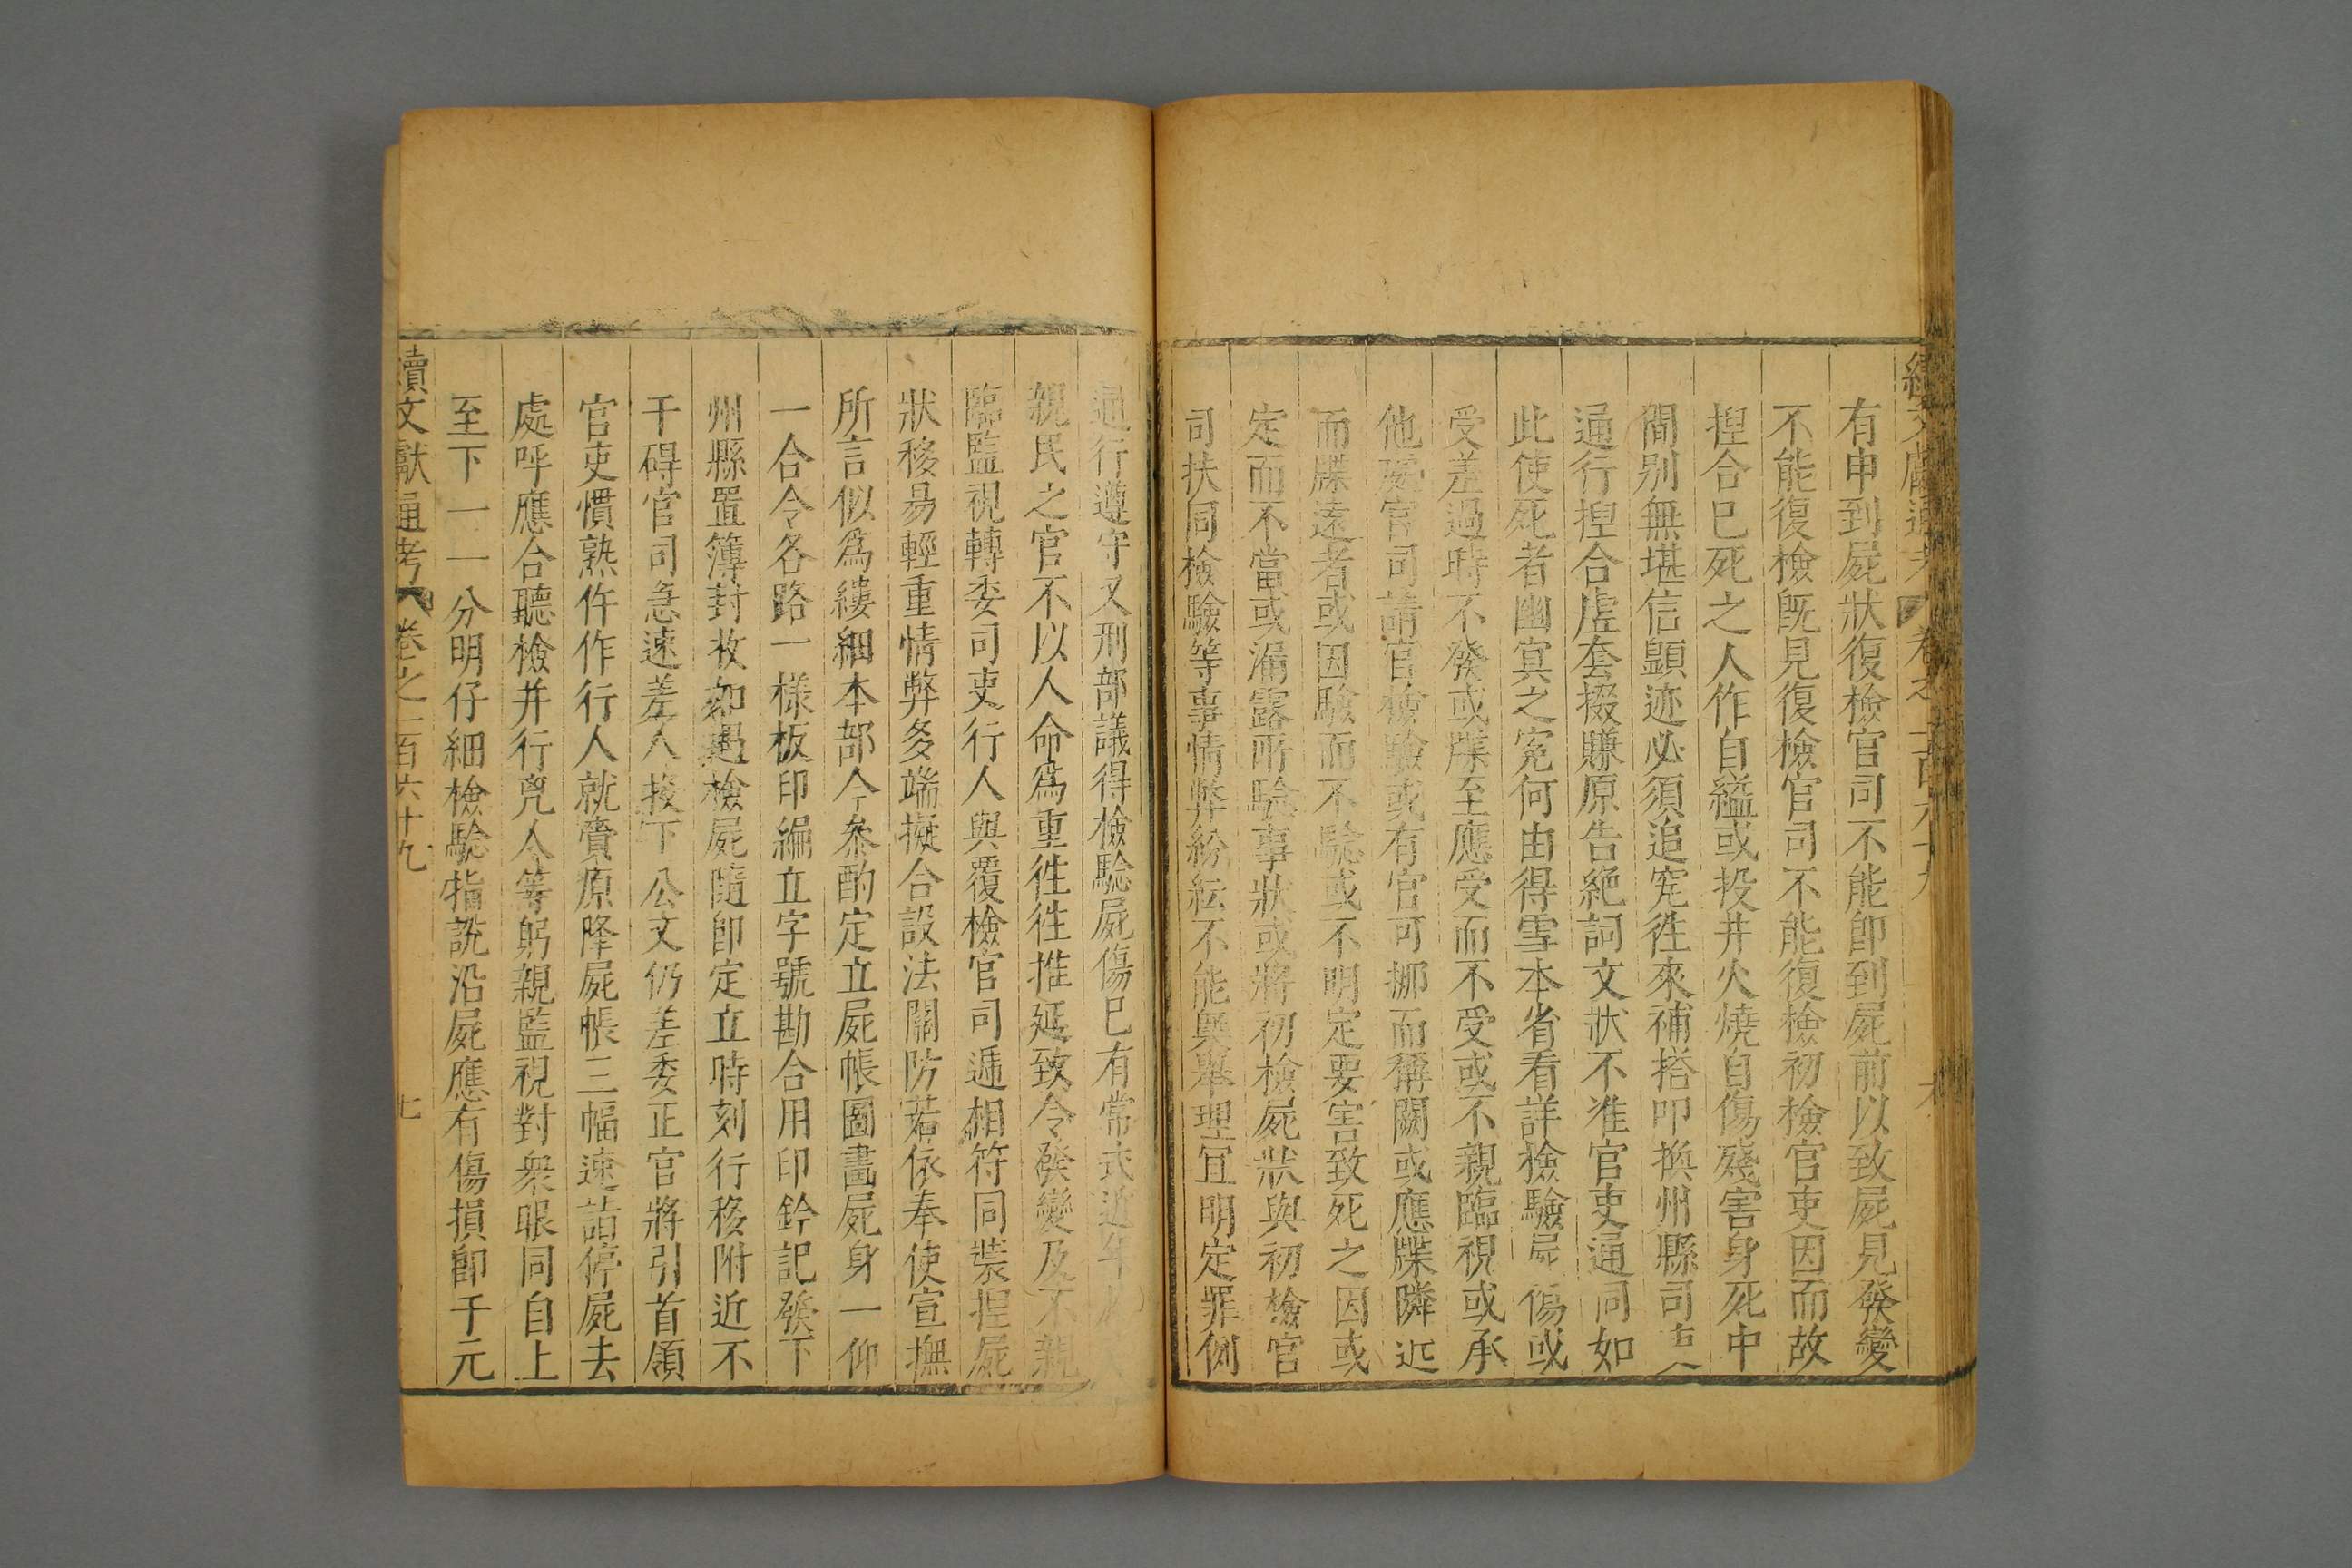 續文獻通考 卷之一百六十九
有申到屍狀復檢官司不能卽到屍前以致屍見發變
不能復檢旣見復檢官司不能復檢初檢官吏因而故
揑合已死之人作自縊或投井火燒自傷殘害身死中
間别無堪信顯迹必須追究徃來補搭叩換州縣司吉
通行揑合虛套掇賺原告絶詞文狀不准官吏通同如
此使死者幽寃之寃何由得雪本省看詳檢驗屍傷或
受差過時不發或牒至應受而不受或不親臨視或承
他處官司請官檢驗或有官可挪而稱闕或應牒隣近
而牒遠者或因驗而不驗或不明定要害致死之因或
定而不當或漏露所驗事狀或將初檢屍狀與初檢官
司扶同檢驗等事情弊紛紜不能具舉理宜明定罪例
通行遵守又刑部議得檢驗屍傷已有常式近年
親民之官不以人命爲重徃徃推延致令發變及不親
臨監視轉委司吏行人與覆檢官司遞相符同裝揑屍
狀移易輕重情弊多端擬合設法關防若依奉使宣撫
所言似爲縷細本部今叅酌定立屍帳圖畫屍身一仰
一合令各路一樣板印編立字號勘合用印鈐記發下
州縣置簿封收如遇檢屍隨卽定立時刻行移附近不
干碍官司急速差人投下公文仍差委正官將引首領
官吏慣熟仵作行人就賫原降屍帳三幅速詣停屍去
處呼應合聽檢并行兇人等躬親監視對衆眼同自上
至下一一分明仔細檢驗指說沿屍應有傷損卽于元
續文獻通考 卷之一百六十九 七